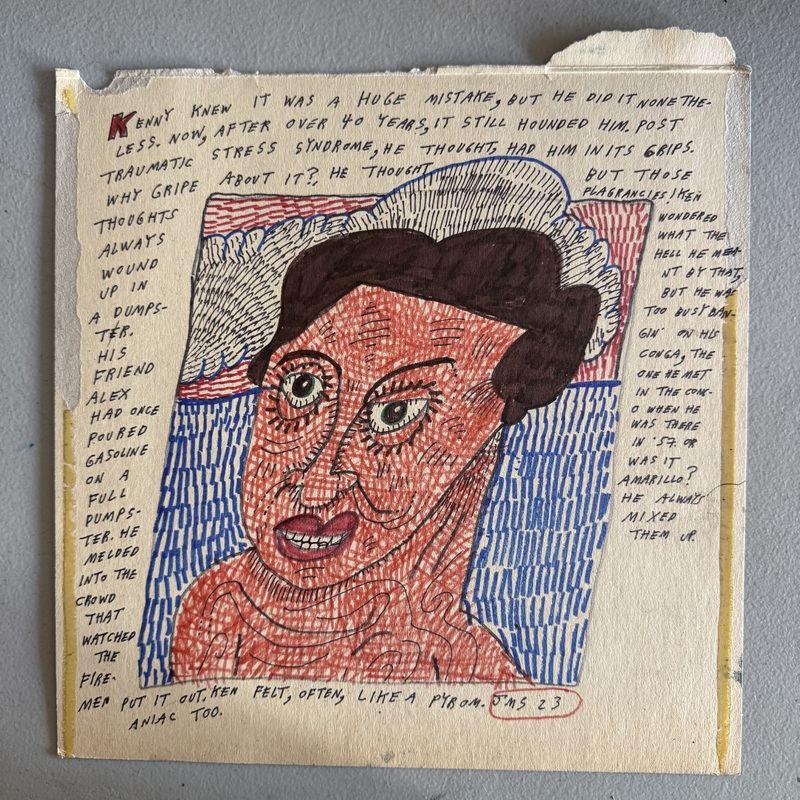 KENNY KNEW IT WAS A HUGE MISTAKE, BUT HE DID IT NONETHE-
LESS. NOW, AFTER OVER 40 YEARS, IT STILL HOUNDED HIM. POST
TRAUMATIC STRESS SYNDROME, HE THOUGHT, HAD HIM IN ITS GRIPS.
WHY GRIPE ABOUT IT?, HE THOUGHT. BUT THOSE
THOUGHTS
ALWAYS
WOUND
UP IN
A DUMPS-
TER.
HIS
FRIEND
ALEX
HAD ONCE
POURED
GASOLINE
ON A
FULL
DUMPS-
TER. HE
MELDED
INTO THE
CROWD
THAT
WATCHED
THE
FIRE-
MEN PUT IT OUT. KEN FELT, OFTEN, LIKE A PYROM-
ANIAC TOO.
FLAGRANCIES! KEN
WONDERED
WHAT THE
HELL HE MEA-
NT BY THAT,
BUT HE WAS
TOO BUSY BAN-
GIN' ON HIS
CONGA, THE
ONE HE MET
IN THE CONG-
O WHEN HE
WAS THERE
IN '57. OR
WAS IT
AMARILLO?
HE ALWAYS
MIXED
THEM UP.
JMS 23